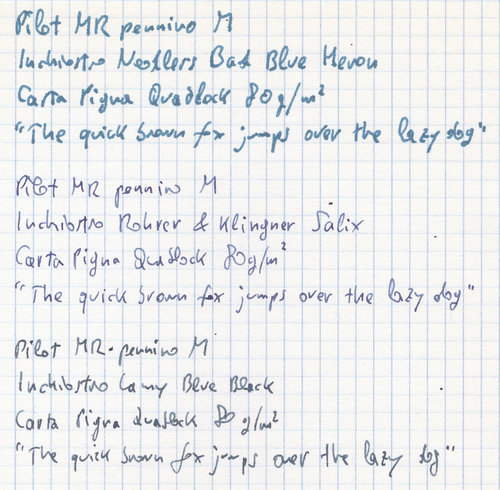 Pilot MR pennino M
Inchiostro Noodlers Bad Blue Heron
Carta Pigna Quadlock 80g/m²
"The quick brown fox jumps over the lazy dog"
Pilot MR pennino M
Inchiostro Rohrer & Klingner Salix
Carta Pigna Quadlock 80g/m²
"The quick brown fox jumps over the lazy dog"
Pilot MR pennino M
Inchiostro Lamy Blue Black
Carta Pigna Quadlock 80 g/m²
"The quick brown fox jumps over the lazy dog"